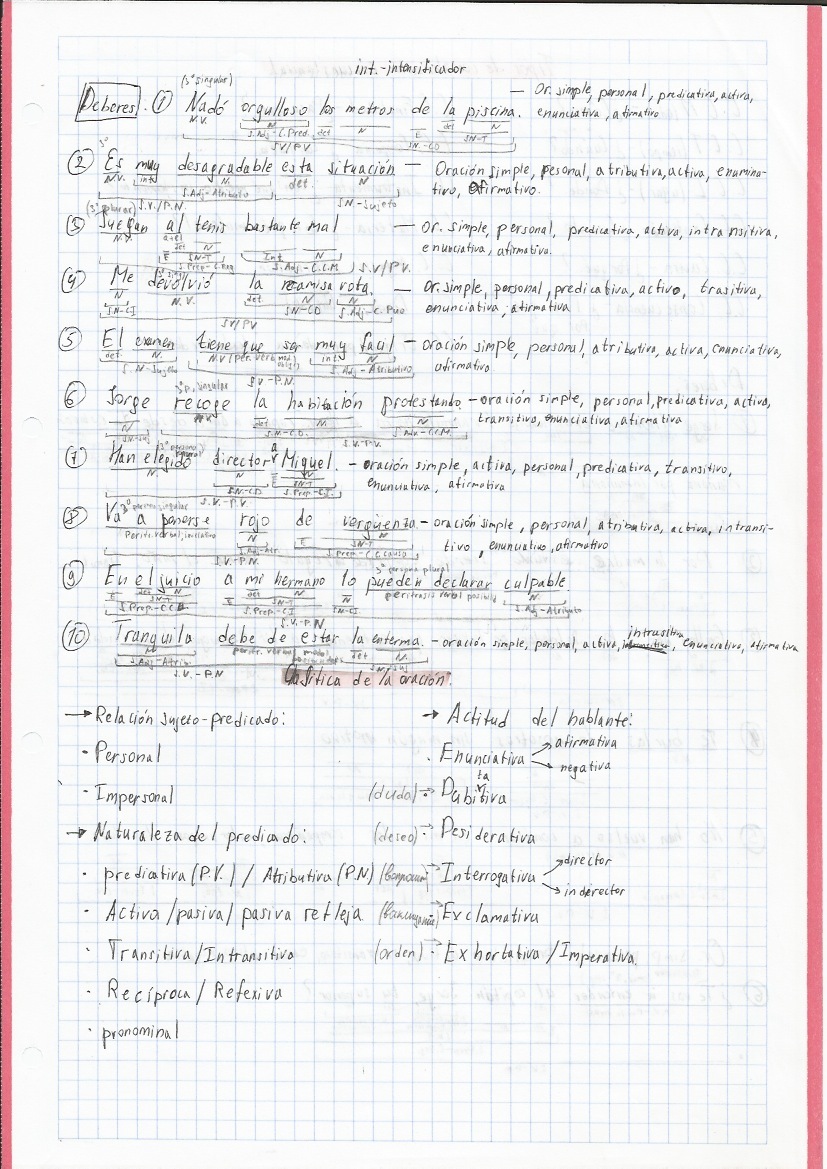 int.-intensificador
(3º singular)
Deberes. ① Nadó orgulloso los metros de la piscina. — Or. simple, personal, predicativa, activa,
enunciativa, afirmativo
N.V. N det N E det N
S.Adj-C.Pred SN-T
SN-CD
SV/PV
3º
② Es muy desagradable esta situación — Oración simple, pesonal, atributiva, activa, enunina-
tivo, afirmativo.
N.V. int N. det. N
S.Adj-Atributo SN-Sujeto
S.V./P.N.
(3º plural)
③ Juegan al tenis bastante mal — Or. simple, personal, predicativa, activa, intransitiva,
enunciativa, afirmativa.
N.V. det N
E SN-T Int. N
S.Prep-C.Reg S.Adj-C.C.M S.V/P.V.
④ Me devolvió la camisa rota. — Or. simple, personal, predicativa, activo, trasitiva,
enunciativa, afirmativa
N N.V. det N N
SN-CI SN-CD S.Adj-C.
SV/PV
⑤ El examen tiene que ser muy facil — oración simple, personal, atributiva, activa, enunciativa,
afirmativo
det. N. N.V/(Per. verb. int N
S.N-Sujeto S.Adj-Atributivo
S.V-P.N.
3º p. singular
⑥ Jorge recoge la habitación protestando. — oración simple, personal, predicativa, activa,
transitivo, enunciativa, afirmativa
N det N N
S.N-Suj S.N-C.D. S.Adv-C.C.M.
S.V.-P.V.
(3º persona plural)
⑦ Han elegido director a Miguel. — oración simple, activa, personal, predicativa, transitivo,
enunciativa, afirmativa
N. N E N
SN-CD SN-T
S.Prep-C.I.
S.V.-P.V.
3º persona singular
⑧ Va a ponerse rojo de vergüenza. — oración simple, personal, atributiva, activa, intransi-
tivo, enunciativo, afirmativo
Perifr. verbal, N E N
S.Adj-Atr. SN-T
S.Prep-C.C.Causa
S.V.-P.N.
3º persona plural
⑨ En el juicio a mi hermano lo pueden declarar culpable
E det N E det N N perifrasis verbal posible N.
SN-T SN-T SN-CI. S.Adj-Atributo
S.Prep.-C.C. S.Prep-C.I
S.V.-P.N.
⑩ Tranquila debe de estar la enferma. — oración simple, personal, activa, intrasitiva, enunciativo, afirmativa
perifr. verbal det N.
S.Adj-Atrib. SN-Suj
S.V.-P.N
Clasifica de la oración.
→ Relación sujeto-predicado:
· Personal
· Impersonal
→ Naturaleza del predicado:
· predicativa (P.V.) / Atributiva (P.N)
· Activa / pasiva / pasiva refleja
· Transitiva / Intransitiva
· Recíproca / Refexiva
· pronominal
→ Actitud del hablante:
· Enunciativa → afirmativa
→ negativa
(duda) · Dubitativa
(deseo) · Desiderativa
(вопрошит) Interrogativa → director
→ inderector
Exclamativa
(orden) · Exhortativa / Imperativa.